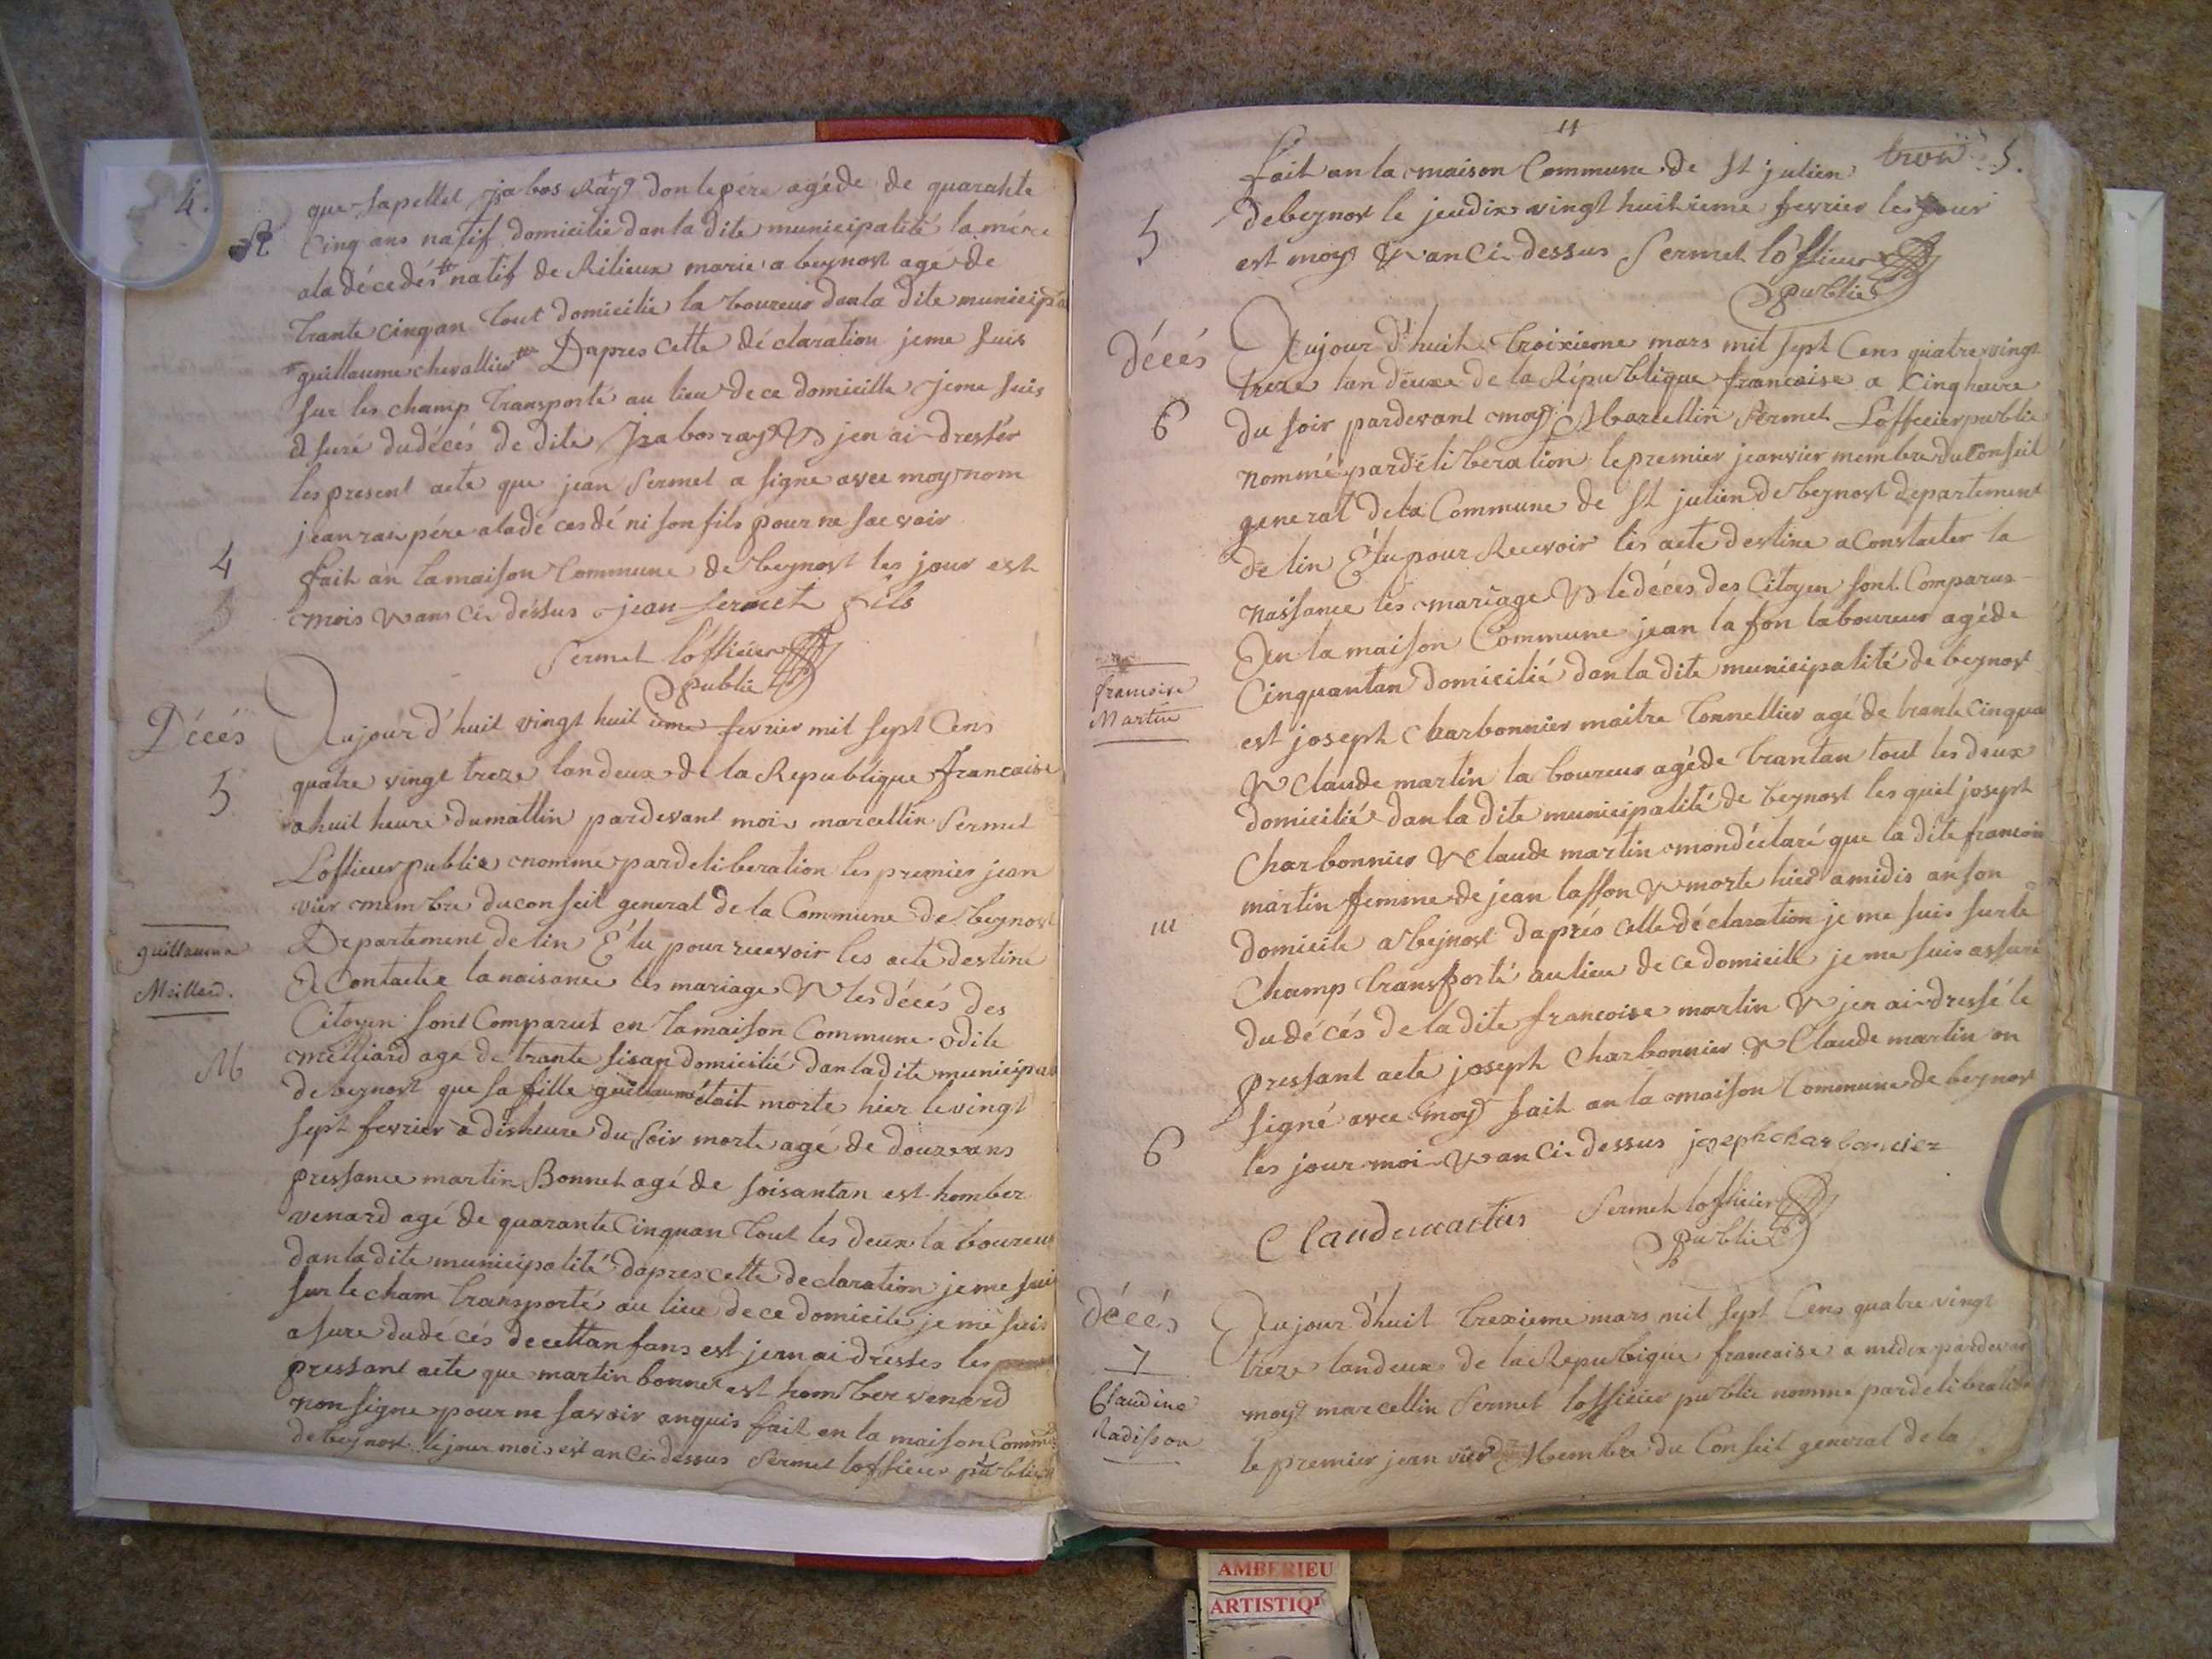 4.
que sapellet jsabos Ray don le pére agéde de quarante
R
cinq ans natif domicilié dan la dite municipalité la mére
ala décedés natif de Rilieux marie a beynost age de
trante cinq an tout domicilie la boureur dan la dite municipa
guillaume chevallier Dapres cette déclaration je me suis
sur les champ transporté au lieu de ce domicille je me suis
a suré du décés de dite jsabos ray & jen ai dressér
les present acte que jean Sermet a signe avec moy nom
jean rai pére ala dé cesdé ni son fils pour ne sac voir
4
fait an la maison Commune de beynost les jour est
mois & ans ci déssus jean sermet fils
Sermet lófficier
public
Décés
Aujour d'huit vingt huit ieme fevrier mil sept Cens
5
quatre vingt treze lan deux de la Republique francaise
a huit heure du mattin pardevant moi marcellin Sermet
Lófficier public nomme par deliberation les premier jean
vier membre du conseil general de la Commune de beynost
guillaume
Méilland.
Departement de lin É'lu pour recevoir les acte destine
A Contacter la naisance les mariage & les décés des
Citoyen sont Comparut en la maison Commune odile
M
meilliard agé de trante sis an domicilié dan la dite municipal
de beynost que sa fille guillaume était morte hier le vingt
sept fevrier a dis heure du soir morte agé de douze ans
pressance martin Bonnet agé de soisantan est homber
venard agé de quarante Cinquan tout les deux la boureur
dan la dite municipalité dapres cette declaration je me suis
sur le cham transporté au lieu de ce domicile je me suis
a sure du dé cés de cettan fans est jen nai dresses les
pressant acte que martin bonnet est homber venard
non signe pour ne savoir anquis fait en la maison Commune
de beynost le jour mois est an ci dessus Sermet lofficier public
11
trois 5.
fait an la maison Commune de St julien
de beynost le jeudix vingt huitieme fevrier les jour
5
est moy & an Ci dessus Sermet lófficier
public
décés
Aujour d'huit troixieme mars mil sept Cens quatre vingt
treze lan deuxe de la République francaise a Cinq heure
6
du soir pardevant moy Marcellin Sermet Lófficier public
nommé par déliberation le premier jeanvier membre du Conseil
general de la Commune de St julien de beynost departement
de lin É'lu pour Recevoir les acte destine a Constacter la
naissance les mariage & le déces des Citoyen sont Comparus
françoise
Martin
An la maison Commune jean la fon laboureur agéde
Cinquantan domicilié dan la dite municipalité de beynost
est joseph Charbonnier maitre tonnellier agé de trante Cinquan
& Claude martin la boureur agéde trantan tout les deux
domicilié dan la dite municipalité de beynost les quel joseph
Charbonnier & Claude martin mon déclaré que la dite francoise
martin femme de jean laffon & morte hier a midis an son
111
domicile a beynost daprés cette déclaration je me suis sur le
Champ transporté au lieu de ce domicile je me suis assuré
du dé cés de la dite francoise martin & jen ai dressé le
pressant acte joseph Charbonnier & Claude martin on
signé avec moy fait an la maison Commune de beynost
6
les jour moi & an Ci dessus joseph charbonnier
Claude martin Sermet lofficier
public
décés
Aujour d'huit trexieme mars mil sept Cens quatre vingt
7
treze lan deux de la Republique francaise a midix pardevan
Claudine
Radisson
moy marcellin Sermet lofficier public nomme par deliberation
le premier jean vier Membre du Conseil general de la
AMBERIEU
ARTISTIQU